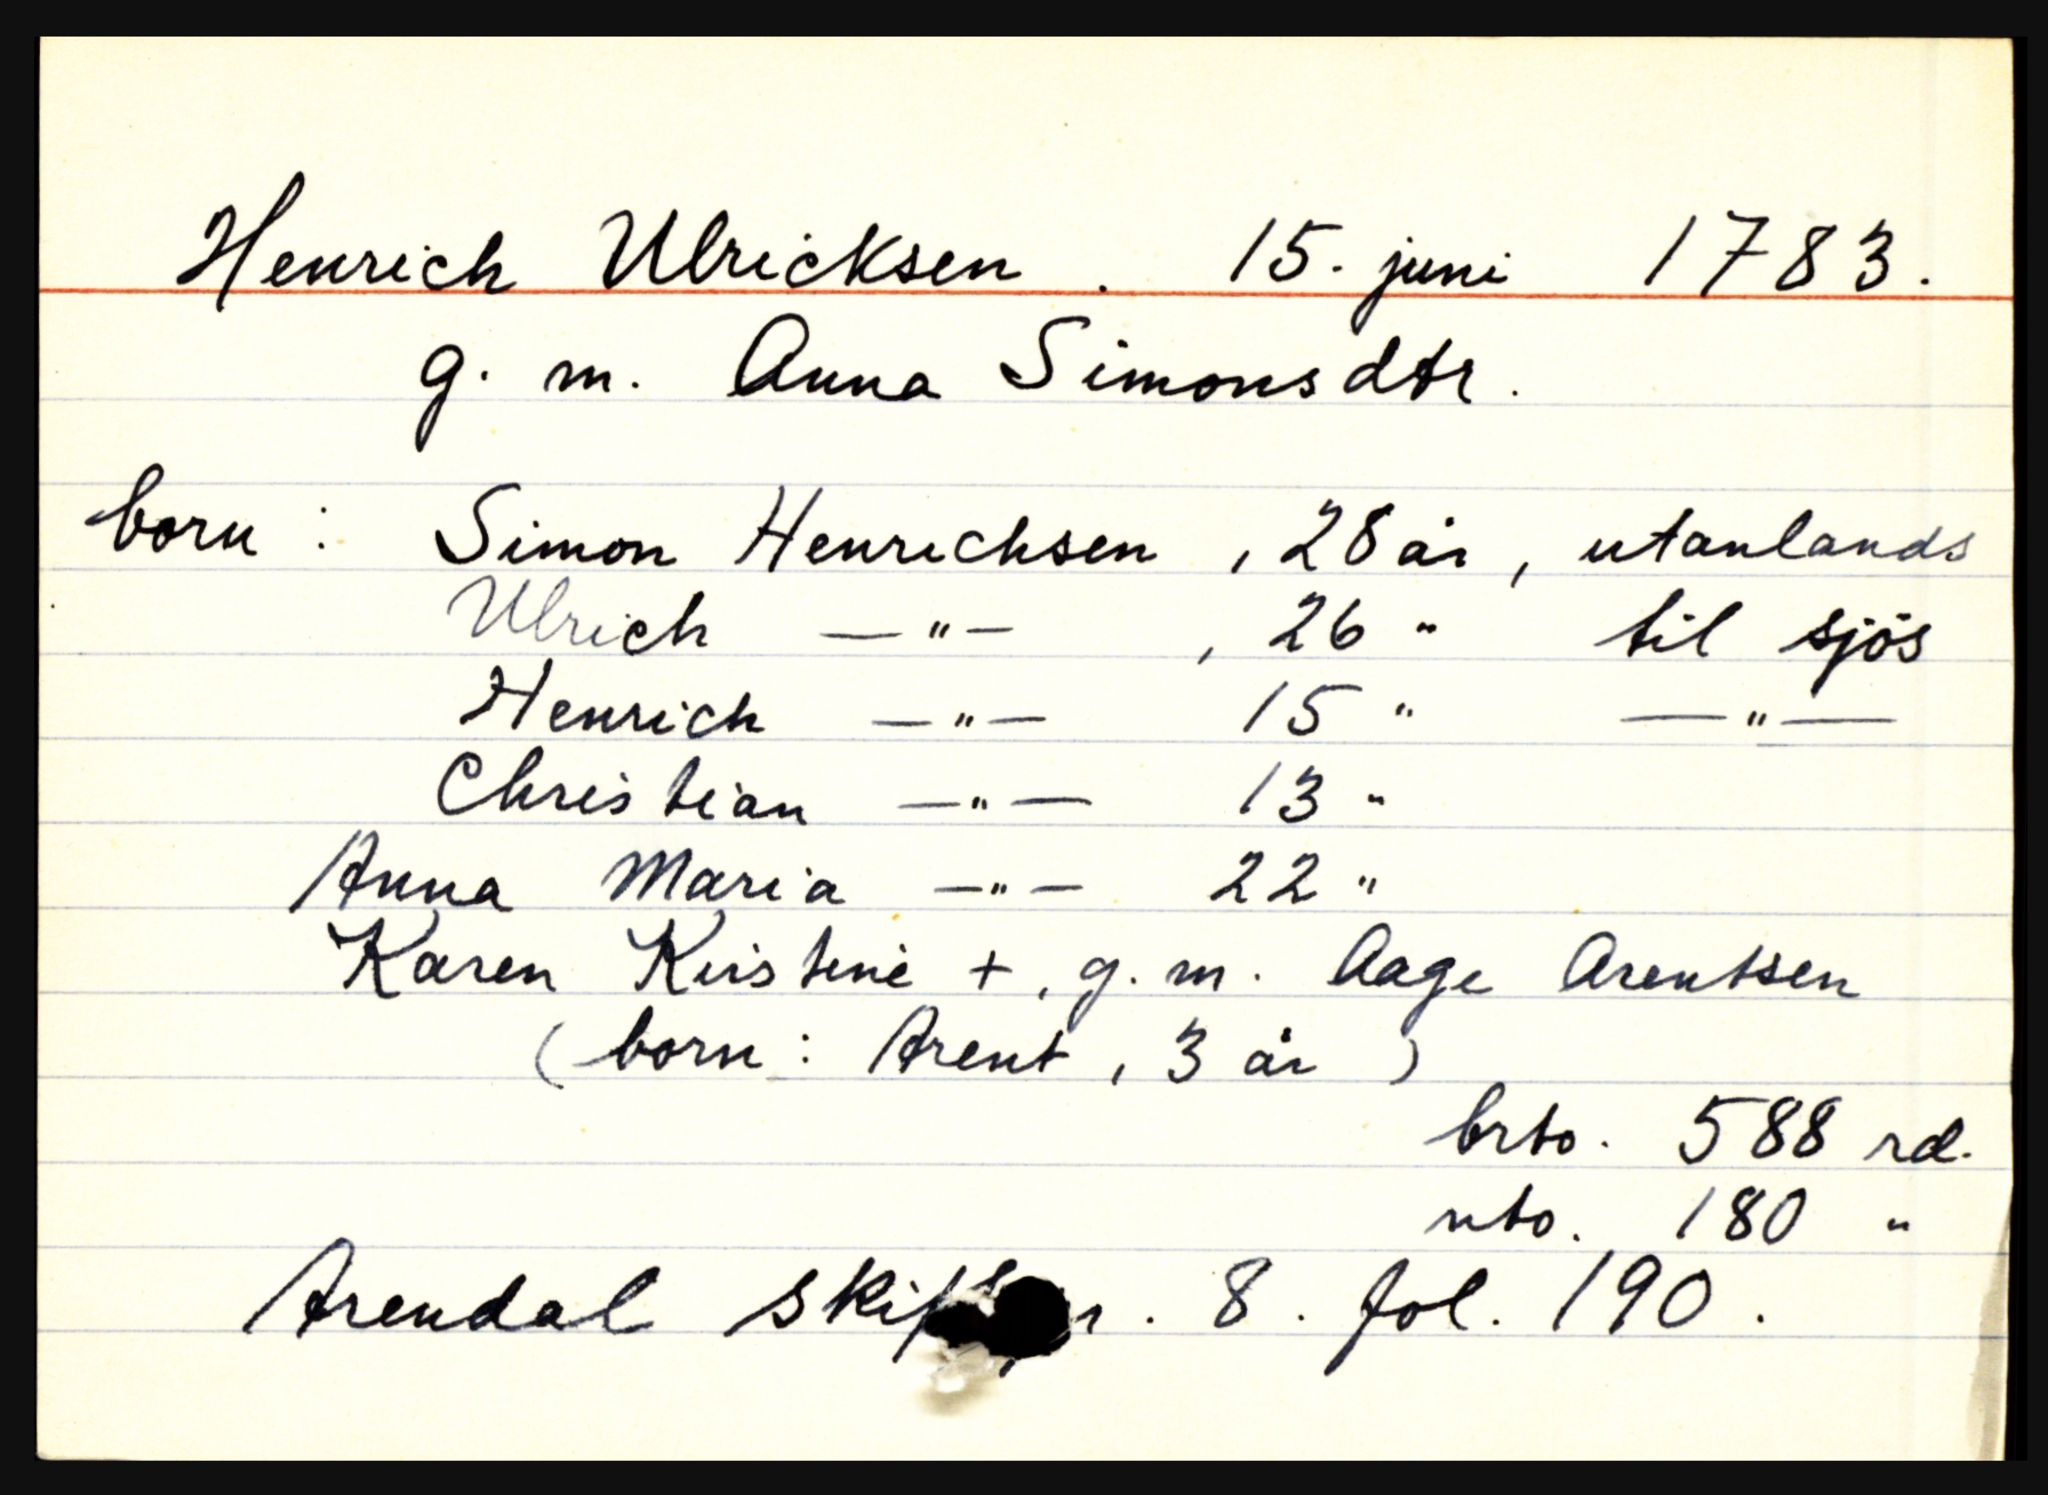 Henrich Ulricksen . 15. juni 1783.
g. m. Anna Simonsdtr.
born : Simon Henrichsen , 28 år , utanlands
Ulrich —"— , 26 " til sjös
Henrich —"— 15 " —"—
Christian —"— 13 "
Anna Maria —"— 22 "
Karen Kirstine + , g. m. Aage Arentsen
( born : Arent , 3 år )
brto. 588 rd.
nto. 180 "
Arendal 8. fol. 190.